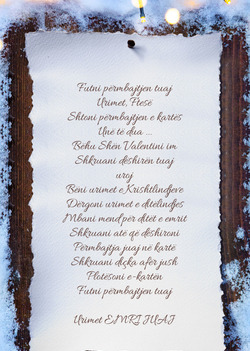 Futni përmbajtjen tuaj
Urimet, Ftesë
Shtoni përmbajtjen e kartës
Unë të dua ...
Behu Shën Valentini im
Shkruani dëshirën tuaj
uroj
Bëni urimet e Krishtlindjeve
Dërgoni urimet e ditëlindjes
Mbani mend për ditët e emrit
Shkruani atë që dëshironi
Përmbajtja juaj në kartë
Shkruani diçka afër jush
Plotësoni e-kartën
Futni përmbajtjen tuaj
Urimet EMRI JUAJ